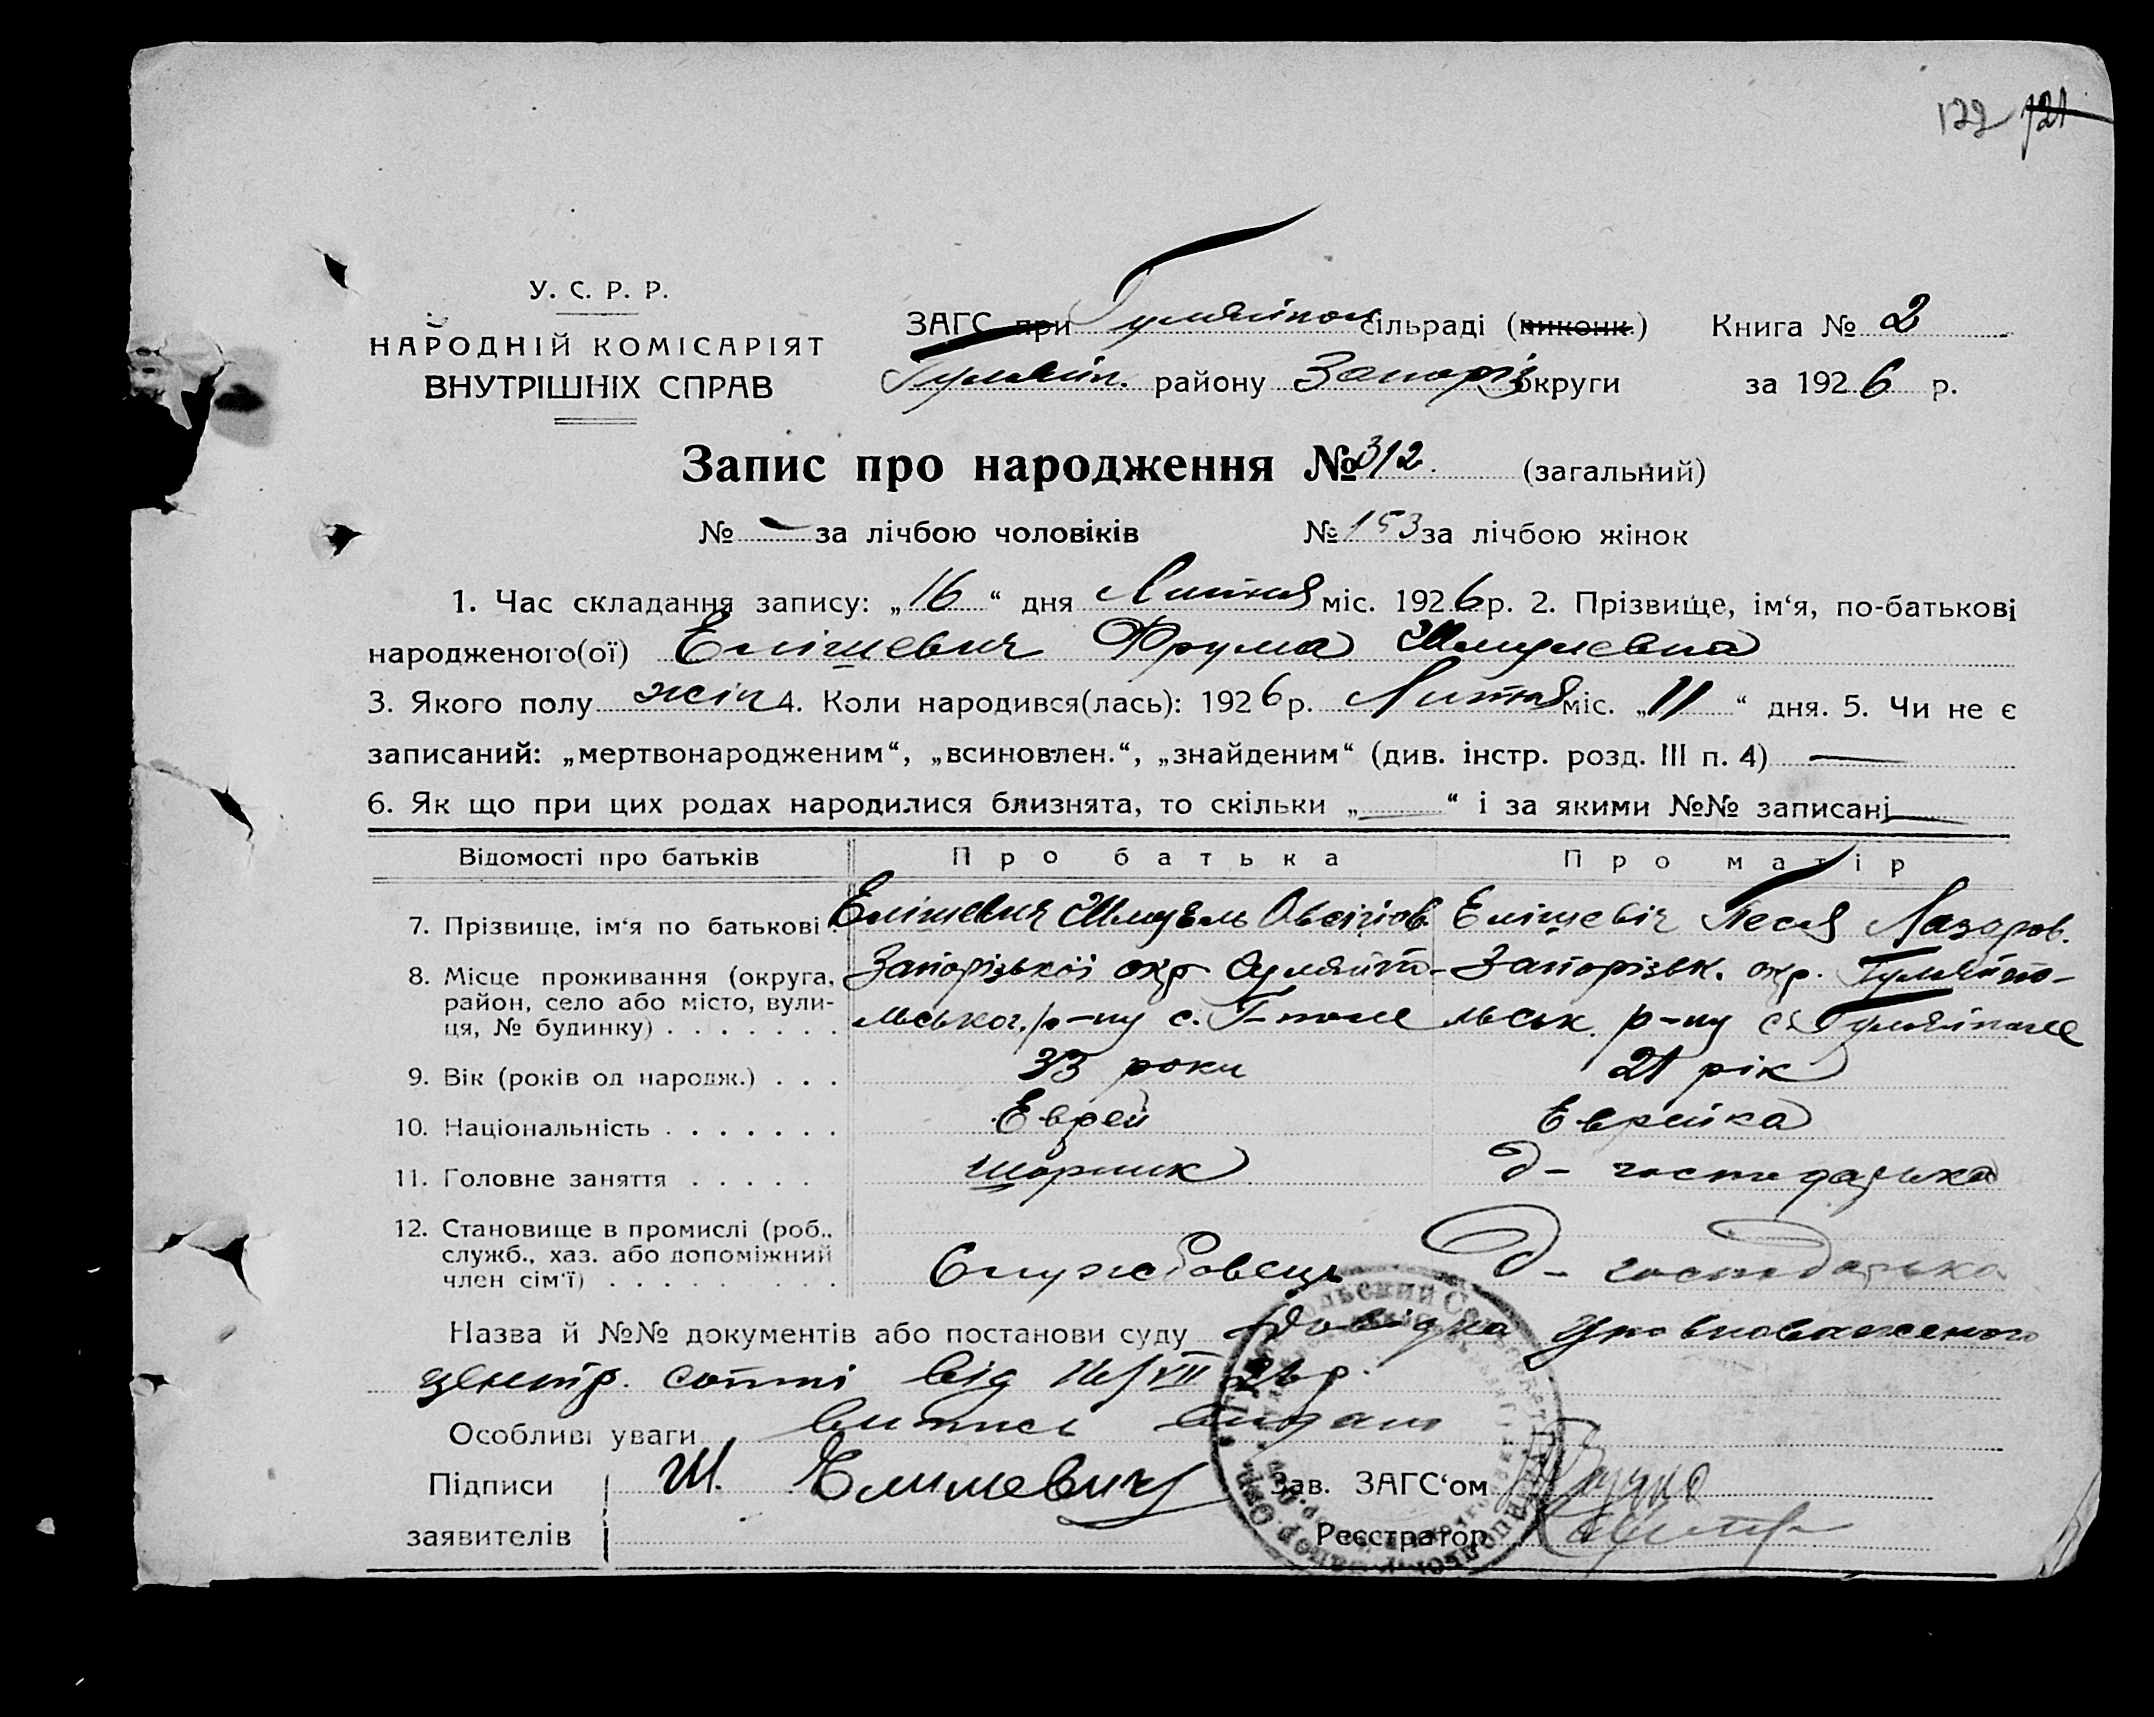 122 121
У. С. Р. Р.
НАРОДНІЙ КОМІСАРІЯТ
ВНУТРІШНІХ СПРАВ
ЗАГС при Гуляйпол сільраді (виконк.)
Гуляйп. району Запоріз округи
Книга № 2
за 1926 р.
Запис про народження № 312. (загальний)
№ — за лічбою чоловіків № 153 за лічбою жінок
1. Час складання запису: „16“ дня Липня міс. 1926 р. 2. Прізвище, ім‘я, по-батькові
народженого(ої) Елішевич Фрума Шмулевна
3. Якого полу жін 4. Коли народився(лась): 1926 р. Липня міс. „11“ дня. 5. Чи не є
записаний: „мертвонародженим“, „всиновлен.“, „знайденим“ (див. інстр. розд. III п. 4) —
6. Як що при цих родах народилися близнята, то скільки „—“ і за якими №№ записані —
Відомості про батьків Про батька Про матір
7. Прізвище, ім‘я по батькові. Елішевич Шмуель Елішевіч Песя Лазаров.
8. Місце проживання (округа, Запорізької окр Гуляйпо- Запорізьк. окр. Гуляйпо-
район, село або місто, вули- льськог. р-ну с. Г-поле льськ. р-ну с. Гуляйполе
ця, № будинку) . . . . . . .
9. Вік (років од народж.) . . . 33 роки 21 рік
10. Національність . . . . . . . Еврей Еврейка
11. Головне заняття . . . . . шорник д-господарька
12. Становище в промислі (роб.,
служб., хаз. або допоміжний Службовець Д-господарька
член сім‘ї) . . . . . . . . .
Назва й №№ документів або постанови суду Довідка уповноваженого
центр. сотні від 16/VII 26 р.
Особливі уваги Випись видан
Підписи Ш. Елишевич Зав. ЗАГС‘ом
заявителів Реєстратор